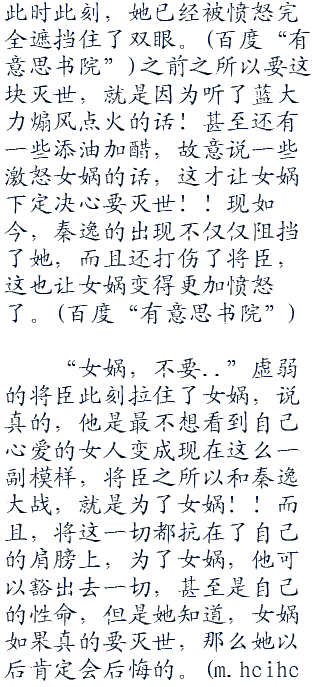 此时此刻，她已经被愤怒完
全遮挡住了双眼。(百度“有
意思书院”)之前之所以要这
块灭世，就是因为听了蓝大
力煽风点火的话！甚至还有
一些添油加醋，故意说一些
激怒女娲的话，这才让女娲
下定决心要灭世！！现如
今，秦逸的出现不仅仅阻挡
了她，而且还打伤了将臣，
这也让女娲变得更加愤怒
了。(百度“有意思书院”)
“女娲，不要..”虚弱
的将臣此刻拉住了女娲，说
真的，他是最不想看到自己
心爱的女人变成现在这么一
副模样，将臣之所以和秦逸
大战，就是为了女娲！！而
且，将这一切都抗在了自己
的肩膀上，为了女娲，他可
以豁出去一切，甚至是自己
的性命，但是她知道，女娲
如果真的要灭世，那么她以
后肯定会后悔的。(m.hcihc